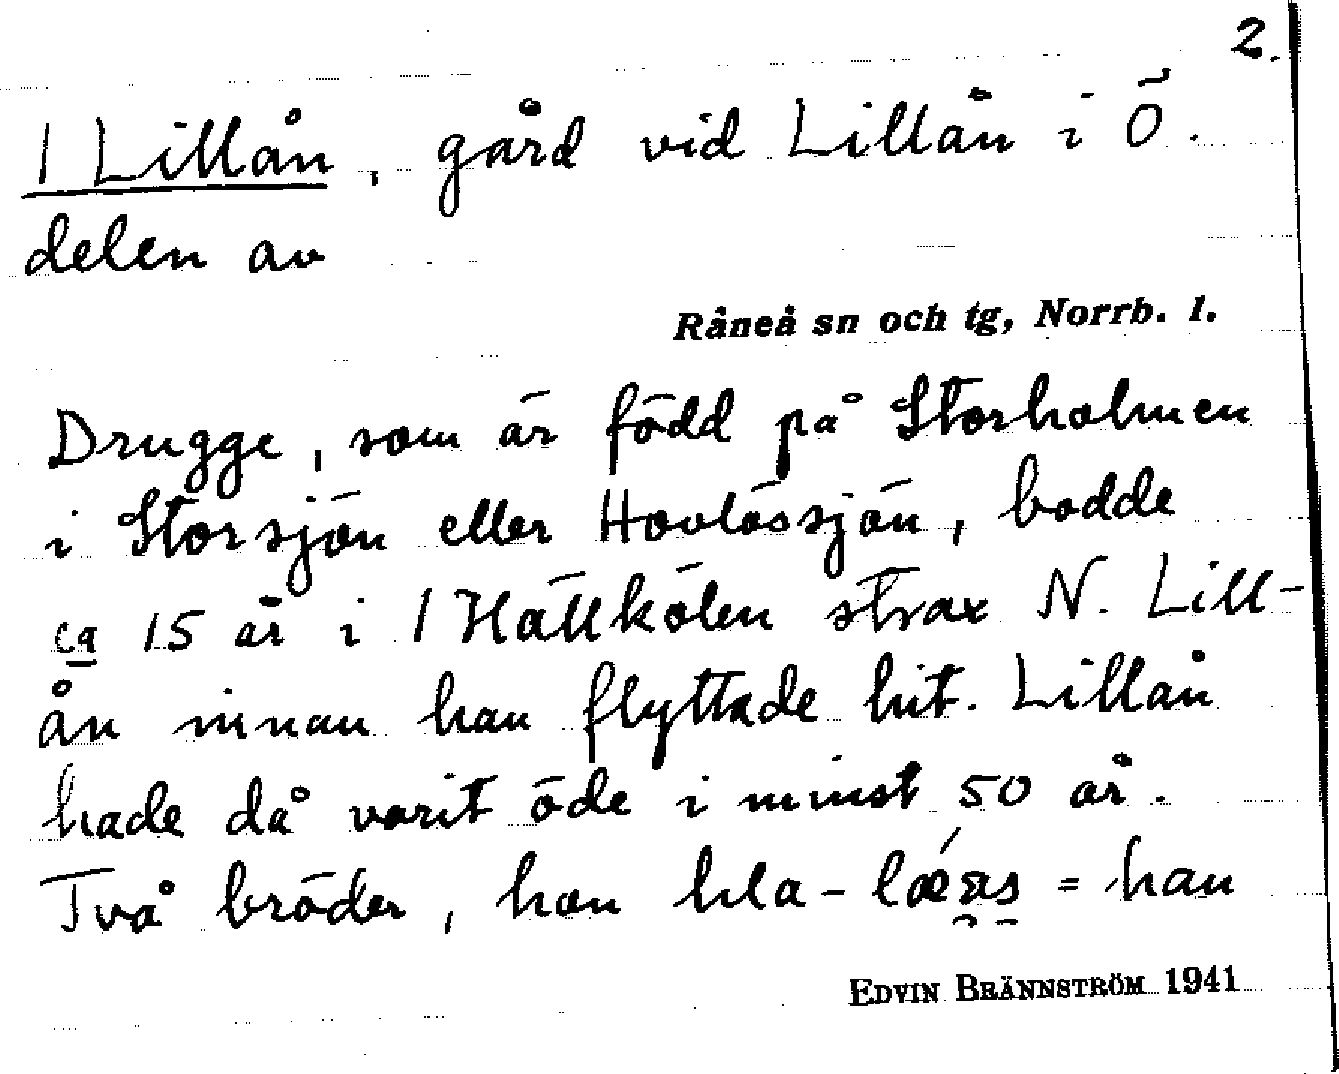 2.
1 Lillån, gård vid Lillån i Ö.
delen av
Råneå sn och tg, Norrb. l.
Drugge, som är född på Storholmen
i Storsjön eller Hovlössjön, bodde
ca 15 år i 1 Hällkölen strax N. Lill-
ån innan han flyttade hit. Lillån
hade då varit öde i minst 50 år.
Två bröder, han = han
EDVIN BRÄNNSTRÖM 1941